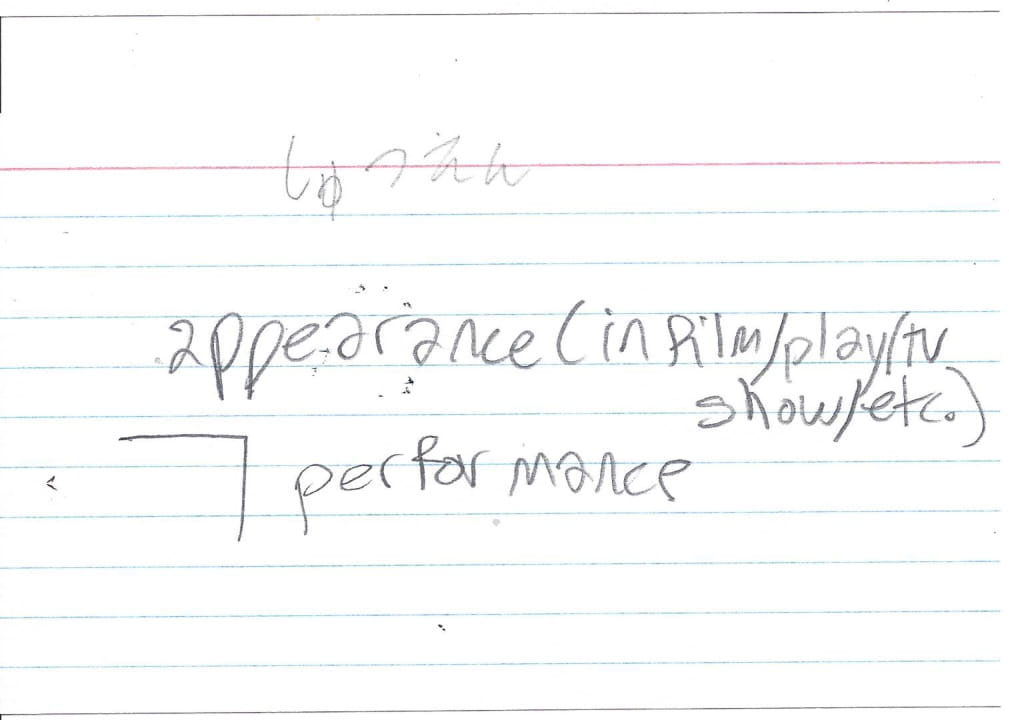 しゅつえん
appearance (in film/play/tv
show/etc.)
performance